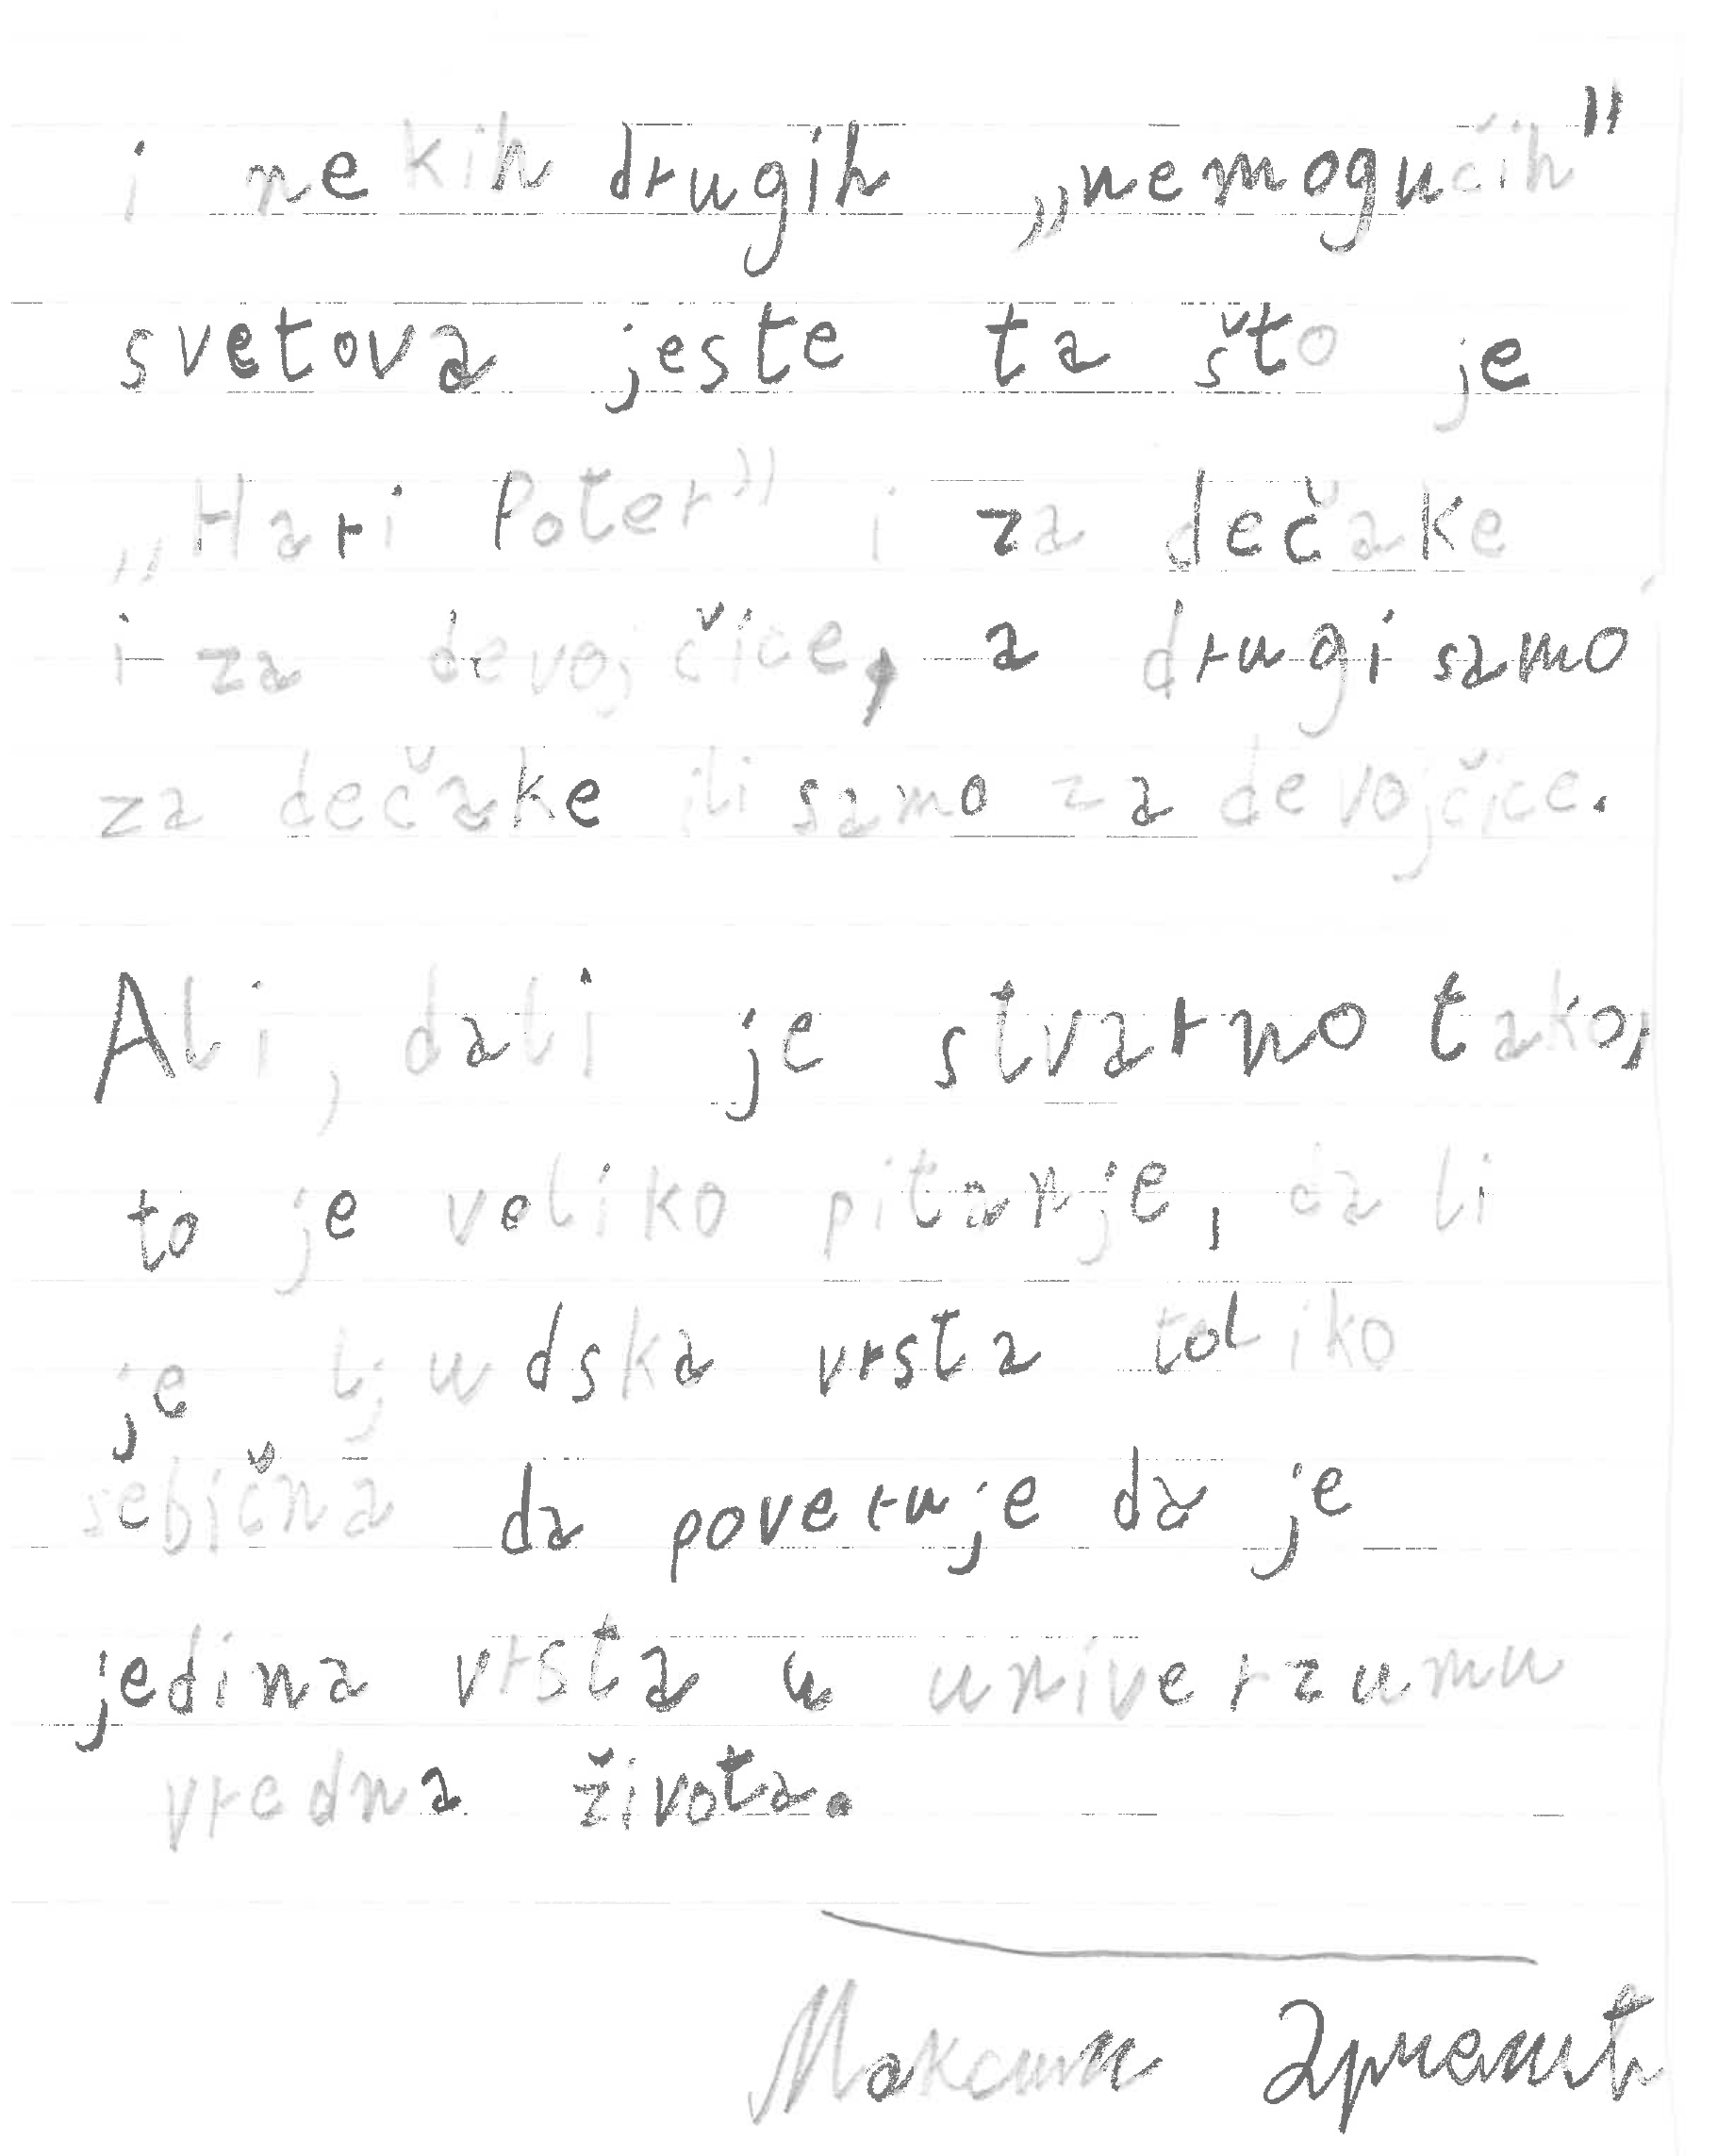 i nekih drugih „nemogućih"
svetova jeste ta što je
„Hari Poter" i za dečake
i za devojčice, a drugi samo
za dečake ili samo za devojčice.
Ali, dali je stvarno tako,
to je veliko pitanje, da li
je ljudska vrsta toliko
sebična da poveruje da je
jedina vrsta u univerzumu
vredna života.
Максим